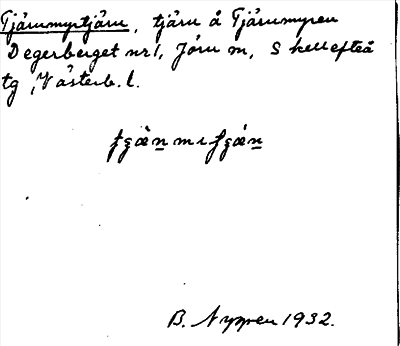 Tjärnmyrtjärn, tjärn å Tjärnmyren
Degerberget nr 1, Jörn sn, Skellefteå
tg, Västerb. l.
B. Nygren 1932.